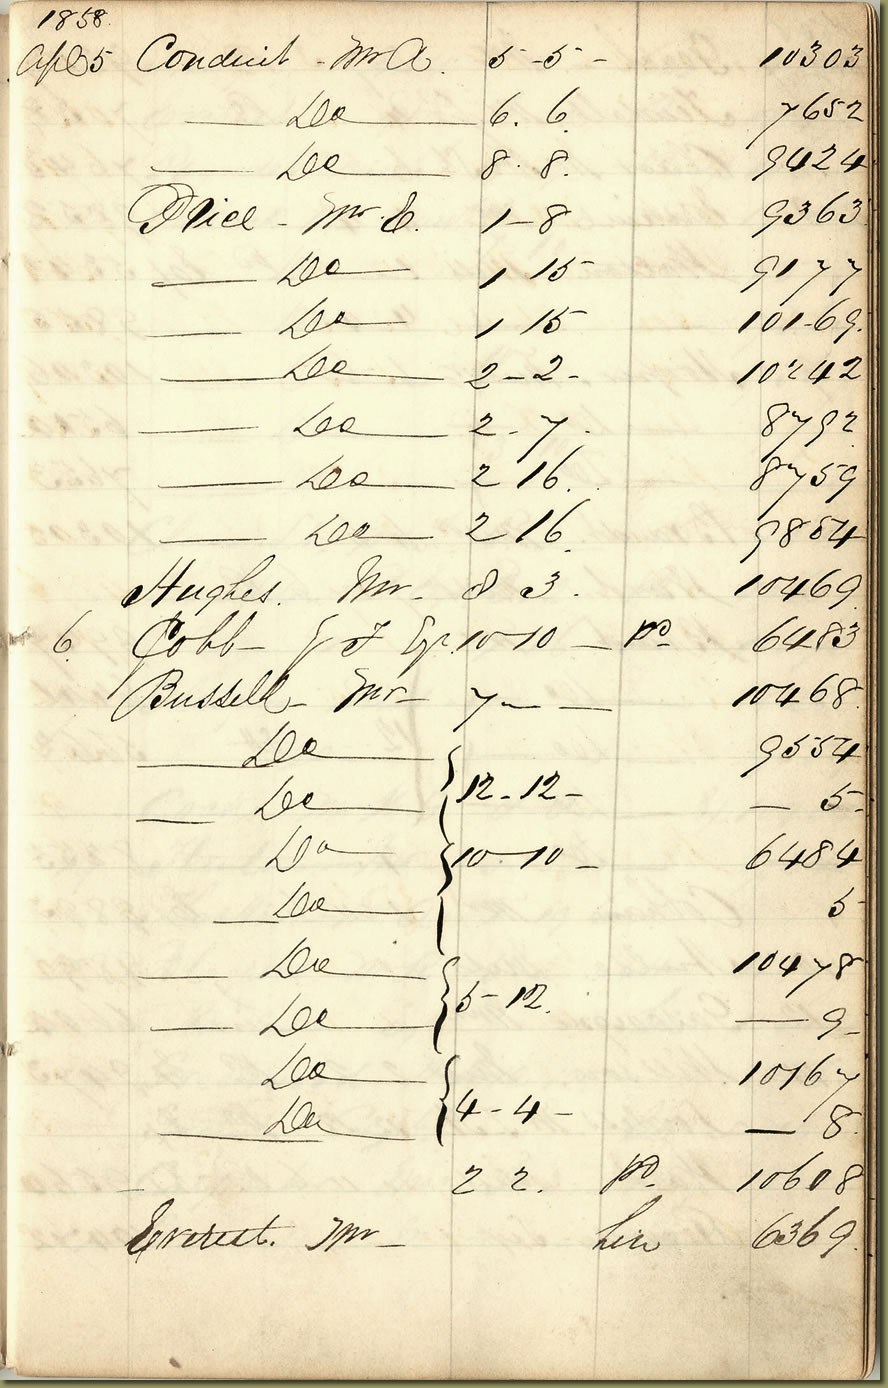 1858.
Apl 5 Conduit - Mr A. 5-5- 10303
— Do — 6. 6. 7652
— Do — 8. 8. 9424
Price - Mr. E. 1-8 9363
— Do — 1 15 9177
— Do — 1 15 10169.
— Do — 2-2- 10242
— Do — 2-7. 8792
— Do — 2 16. 8759
— Do — 2 16. 9854
Hughes. Mr. 8 3. 10469.
6. Cobb - J F Esq. 10-10 — pd 6483
Bussell - Mr - 7 — — 10468.
— Do — 9554
— Do — { 12-12- — 5-
Do — { 10-10- 6484
— Do — 5
— Do — 10478
— Do — { 5-12. — 9-
Do — 10167
— Do — { 4-4- — 8.
- 2 2. pd. 10608
Everest. Mr - 6369.